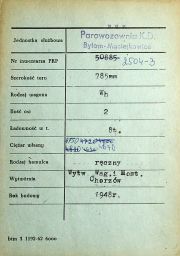 P.K.P.
Jednostka służbowa Parowozownia K.D.
Bytom-Maciejkowice
Nr inwentarza PKP 50685 2504-3
Szerokość toru 785mm
Rodzaj wagonu Wh
Ilość osi 2
Ładowność w t. 8t.
Ciężar własny
Rodzaj hamulca ręczny
Wytwórnia Wytw. Wag. i Most. Chorzów
Rok budowy 1948r.